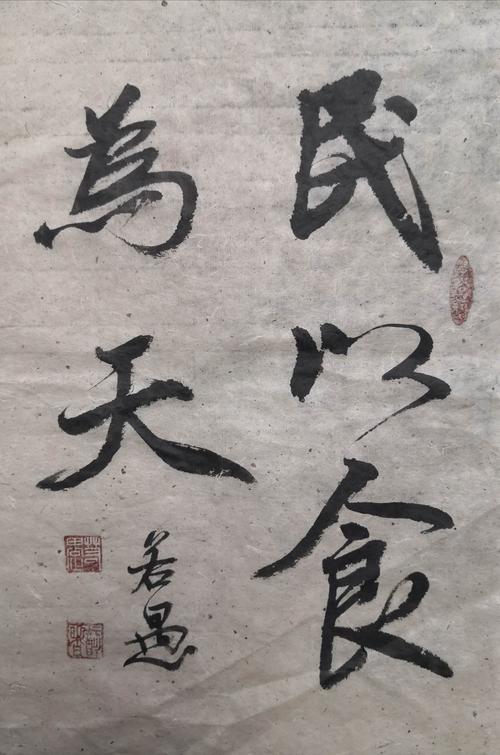 民以食
為天
若愚